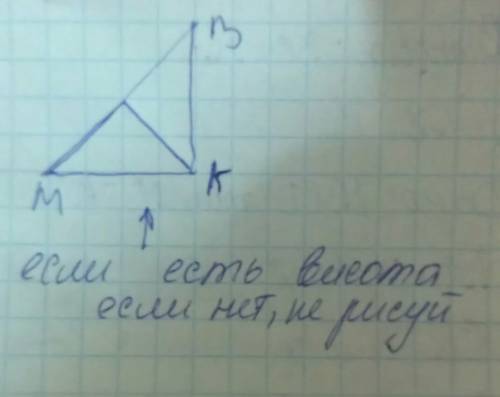 В
М
К
если есть висота
если нет, не рисуй